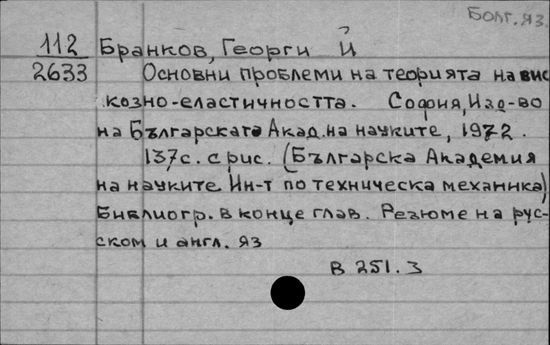 Болг. яз.
112 Бранков, Георги Й
2633 Основни проблеми на теорията на вис
козно-еластичността. София, Изд-во
на Българската Акад. на науките, 1972.
137с. с рис. (Българска Академия
на науките. Ин-т по техническа механика)
Библиогр. в конце глав. Резюме на рус-
ском и англ. яз
В 251.3